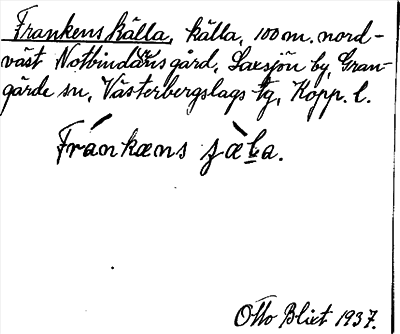 Frankens källa, källa, 100 m. nord-
väst Notbindars gård, Saxsjön by, Gran-
gärde sn, Västerbergslags tg, Kopp. l.
Fránkæns
Otto Blixt 1937.